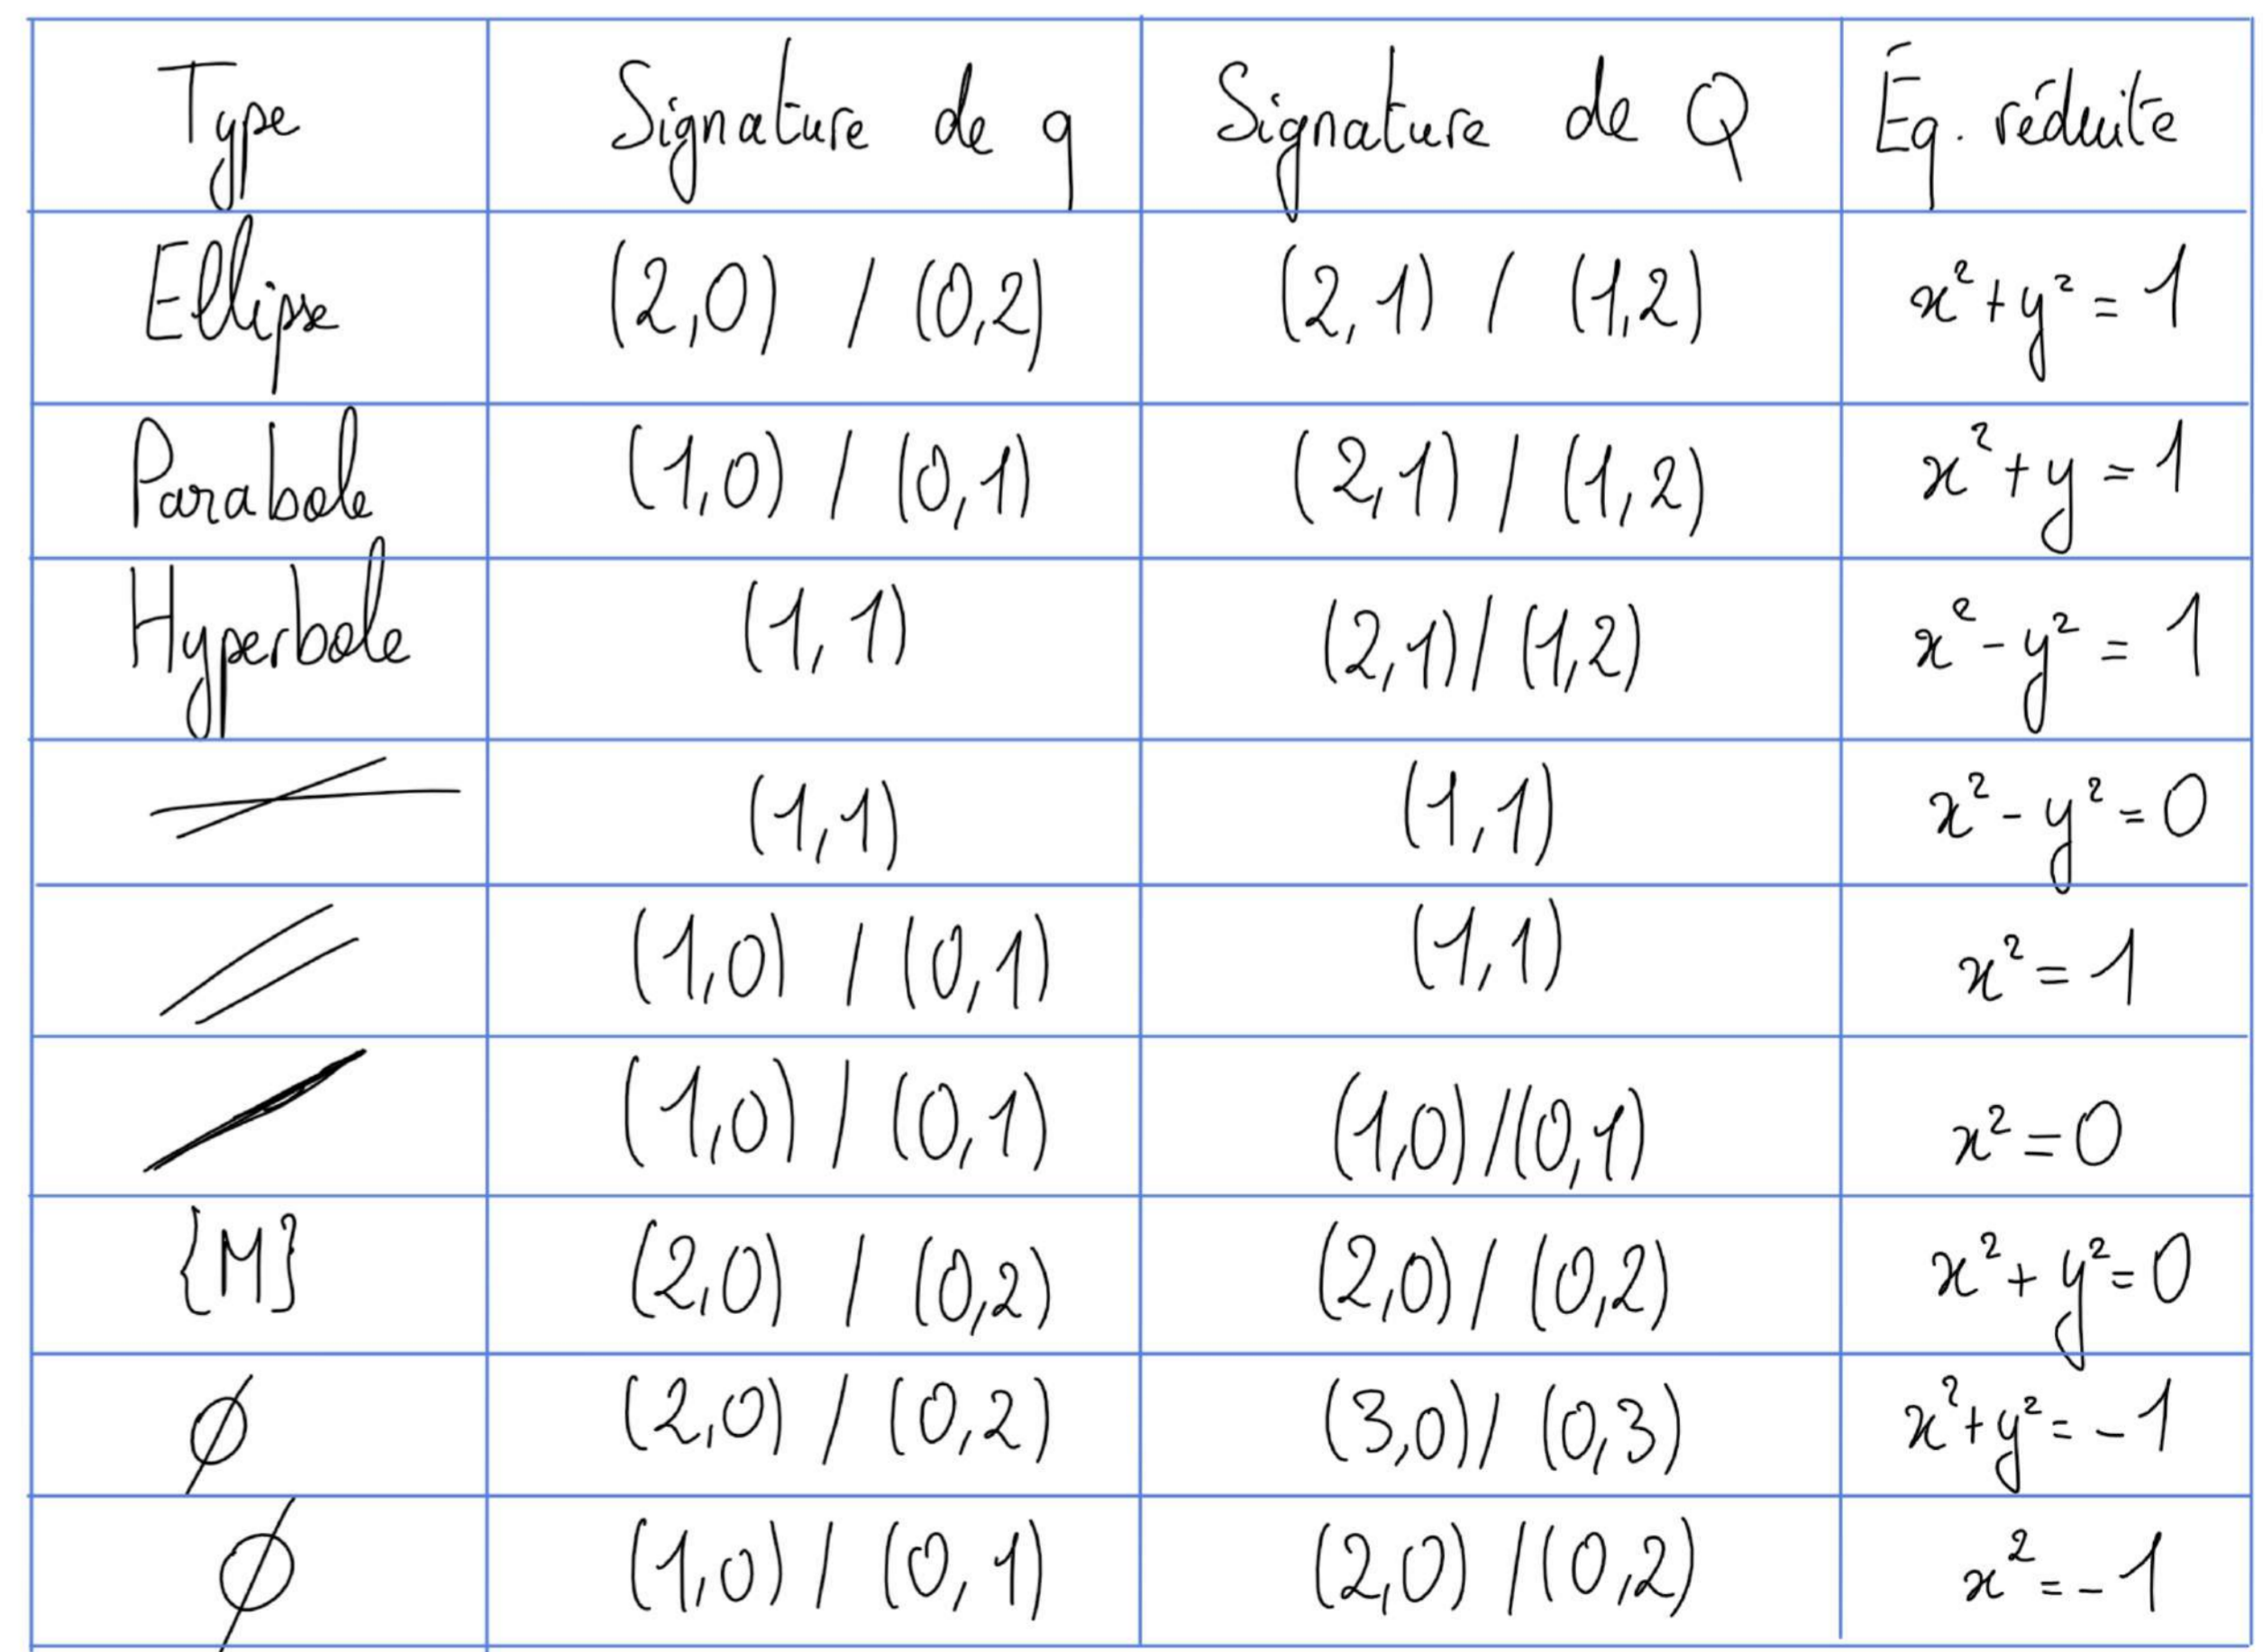 Type Signature de q Signature de Q Éq. réduite
Ellipse (2,0) / (0,2) (2,1) / (1,2) x² + y² = 1
Parabole (1,0) / (0,1) (2,1) / (1,2) x² + y = 1
Hyperbole (1,1) (2,1) / (1,2) x² - y² = 1
(1,1) (1,1) x² - y² = 0
(1,0) / (0,1) (1,1) x² = 1
(1,0) / (0,1) (1,0) / (0,1) x² = 0
{M} (2,0) / (0,2) (2,0) / (0,2) x² + y² = 0
∅ (2,0) / (0,2) (3,0) / (0,3) x² + y² = -1
∅ (1,0) / (0,1) (2,0) / (0,2) x² = -1